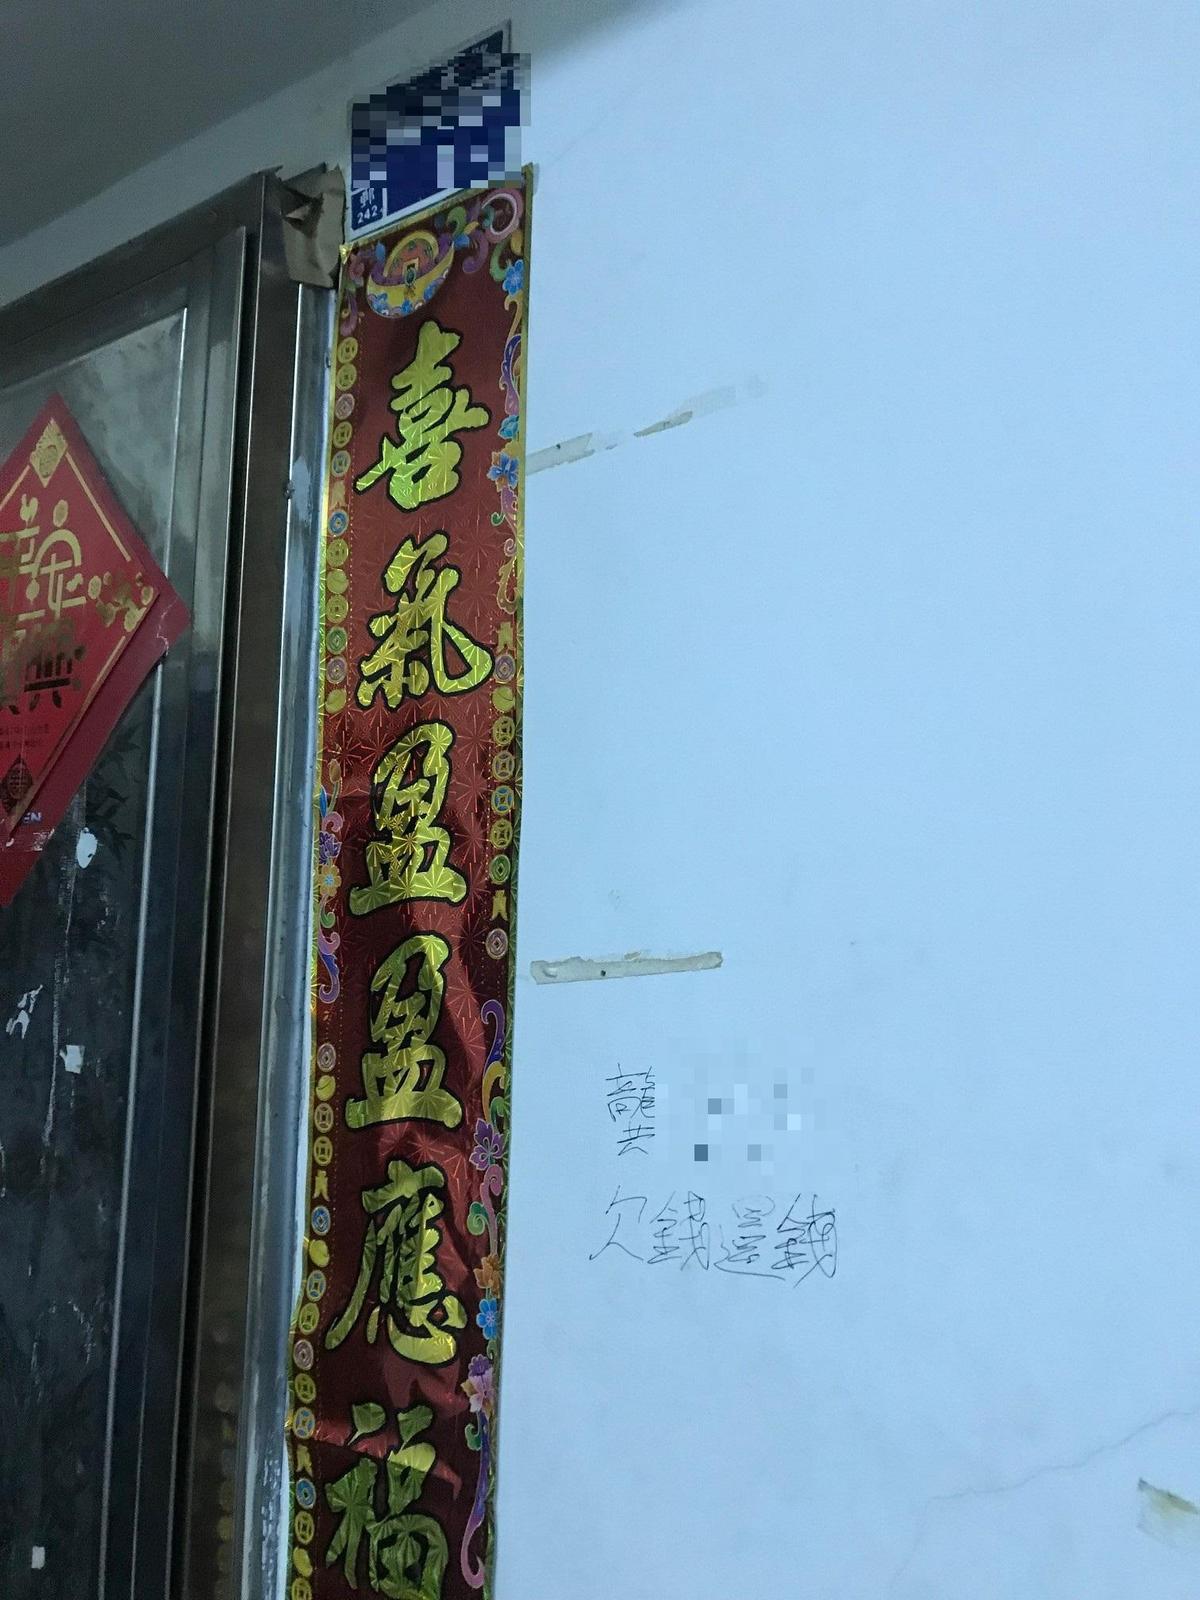 郵
242
喜氣盈盈應福
興
EN
龔
欠錢還錢